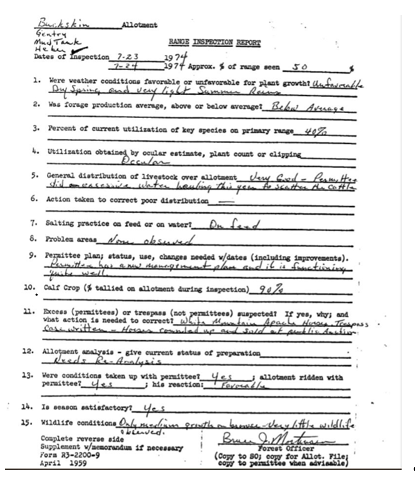 Buckskin Allotment
Gentry
Mud Tank
Heber
RANGE INSPECTION REPORT
Dates of Inspection 7-23 1974
7-24 1974 Approx. % of range seen 50 %
1. Were weather conditions favorable or unfavorable for plant growth? Unfavorable
Dry Spring and very light Summer Rains
2. Was forage production average, above or below average? Below Average
3. Percent of current utilization of key species on primary range 40%
4. Utilization obtained by ocular estimate, plant count or clipping
Ocular
5. General distribution of livestock over allotment Very Good - Permittee
did an excessive water hauling this year to scatter the cattle
6. Action taken to correct poor distribution —
7. Salting practice on feed or on water? On feed
8. Problem areas None observed
9. Permittee plan; status, use, changes needed w/dates (including improvements).
Permittee has a new management plan and it is functioning
quite well
10. Calf Crop (% tallied on allotment during inspection) 90%
11. Excess (permittees) or trespass (not permittees) suspected? If yes, why; and
what action is needed to correct? White Mountain Apache Horses. Trespass
Case written - Horses rounded up and sold at public Auction
12. Allotment analysis - give current status of preparation
Needs Re-Analysis
13. Were conditions taken up with permittee? Yes ; allotment ridden with
permittee? Yes ; his reaction: Favorable
14. Is season satisfactory? Yes
15. Wildlife conditions Only medium growth on browse - Very little wildlife
observed.
Complete reverse side
Supplement w/memorandum if necessary
Form R3-2200-9
April 1959
Forest Officer
(Copy to SO; copy for Allot. File;
copy to permittee when advisable)